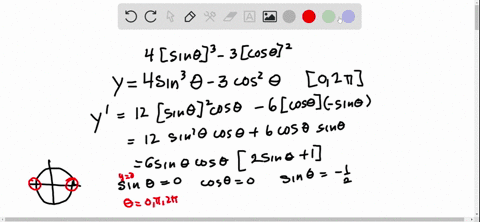 4[sinθ]³-3[cosθ]²
y=4sin³θ-3cos²θ [0,2π]
y'=12[sinθ]²cosθ -6[cosθ](-sinθ)
=12 sin²θ cosθ+6cosθ sinθ
=6sinθ cosθ[2sinθ+1]
sinθ=0 cosθ=0 sinθ=-1/2
θ=0,π,2π